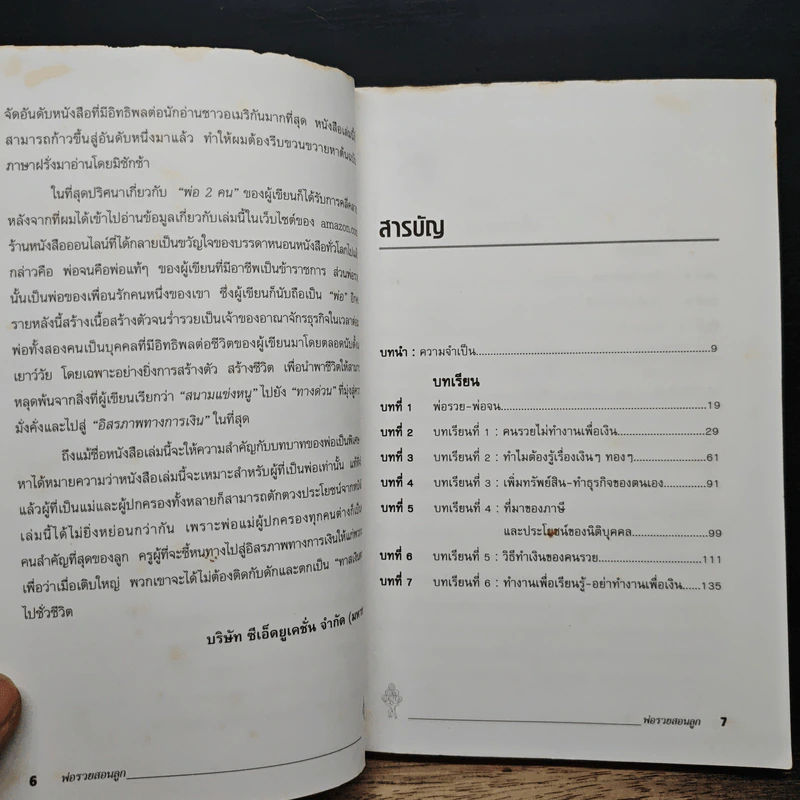 จัดอันดับหนังสือที่มีอิทธิพลต่อนักอ่านชาวอเมริกันมากที่สุด หนังสือเล่มนี้
สามารถก้าวขึ้นสู่อันดับหนึ่งมาแล้ว ทำให้ผมต้องรีบขวนขวายหาต้นฉบับ
ภาษาฝรั่งมาอ่านโดยมิชักช้า
ในที่สุดปริศนาเกี่ยวกับ "พ่อ 2 คน" ของผู้เขียนก็ได้รับการคลี่คลาย
หลังจากที่ผมได้เข้าไปอ่านข้อมูลเกี่ยวกับเล่มนี้ในเว็บไซต์ของ amazon.com
ร้านหนังสือออนไลน์ที่ได้กลายเป็นขวัญใจของบรรดาหนอนหนังสือทั่วโลก
กล่าวคือ พ่อจนคือพ่อแท้ๆ ของผู้เขียนที่มีอาชีพเป็นข้าราชการ ส่วนพ่อรวย
นั้นเป็นพ่อของเพื่อนรักคนหนึ่งของเขา ซึ่งผู้เขียนก็นับถือเป็น "พ่อ"
รายหลังนี้สร้างเนื้อสร้างตัวจนร่ำรวยเป็นเจ้าของอาณาจักรธุรกิจในเวลาต่อมา
พ่อทั้งสองคนเป็นบุคคลที่มีอิทธิพลต่อชีวิตของผู้เขียนมาโดยตลอดนับตั้งแต่
เยาว์วัย โดยเฉพาะอย่างยิ่งการสร้างตัว สร้างชีวิต เพื่อนำพาชีวิตให้สามารถ
หลุดพ้นจากสิ่งที่ผู้เขียนเรียกว่า "สนามแข่งหนู" ไปยัง "ทางด่วน" ที่มุ่งสู่ความ
มั่งคั่งและไปสู่ "อิสรภาพทางการเงิน" ในที่สุด
ถึงแม้ชื่อหนังสือเล่มนี้จะให้ความสำคัญกับบทบาทของพ่อเป็นพิเศษ
หาได้หมายความว่าหนังสือเล่มนี้จะเหมาะสำหรับผู้ที่เป็นพ่อเท่านั้น แท้ที่จริง
แล้วผู้ที่เป็นแม่และผู้ปกครองทั้งหลายก็สามารถตักตวงประโยชน์จากหนังสือ
เล่มนี้ได้ไม่ยิ่งหย่อนกว่ากัน เพราะพ่อแม่ผู้ปกครองทุกคนต่างก็เป็น
คนสำคัญที่สุดของลูก ครูผู้ที่จะชี้หนทางไปสู่อิสรภาพทางการเงินให้แก่พวกเขา
เพื่อว่าเมื่อเติบใหญ่ พวกเขาจะได้ไม่ต้องติดกับดักและตกเป็น "ทาสเงิน"
ไปชั่วชีวิต
บริษัท ซีเอ็ดยูเคชั่น จำกัด (มหาชน)
6 พ่อรวยสอนลูก
สารบัญ
บทนำ : ความจำเป็น 9
บทเรียน
บทที่ 1 พ่อรวย-พ่อจน 19
บทที่ 2 บทเรียนที่ 1 : คนรวยไม่ทำงานเพื่อเงิน 29
บทที่ 3 บทเรียนที่ 2 : ทำไมต้องรู้เรื่องเงินๆ ทองๆ 61
บทที่ 4 บทเรียนที่ 3 : เพิ่มทรัพย์สิน-ทำธุรกิจของตนเอง 91
บทที่ 5 บทเรียนที่ 4 : ที่มาของภาษี
และประโยชน์ของนิติบุคคล 99
บทที่ 6 บทเรียนที่ 5 : วิธีทำเงินของคนรวย 111
บทที่ 7 บทเรียนที่ 6 : ทำงานเพื่อเรียนรู้-อย่าทำงานเพื่อเงิน 135
พ่อรวยสอนลูก 7